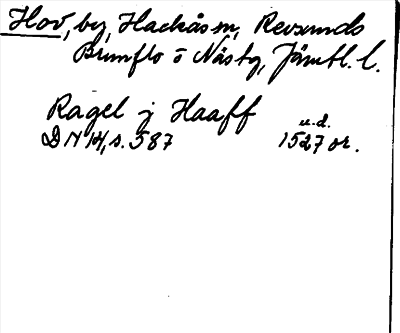 Hov, by, Hackås sn, Revsunds
Brunflo o Näs tg, Jämtl. l.
Ragel j Haaff u.d.
DN 14, s. 587 1527 or.